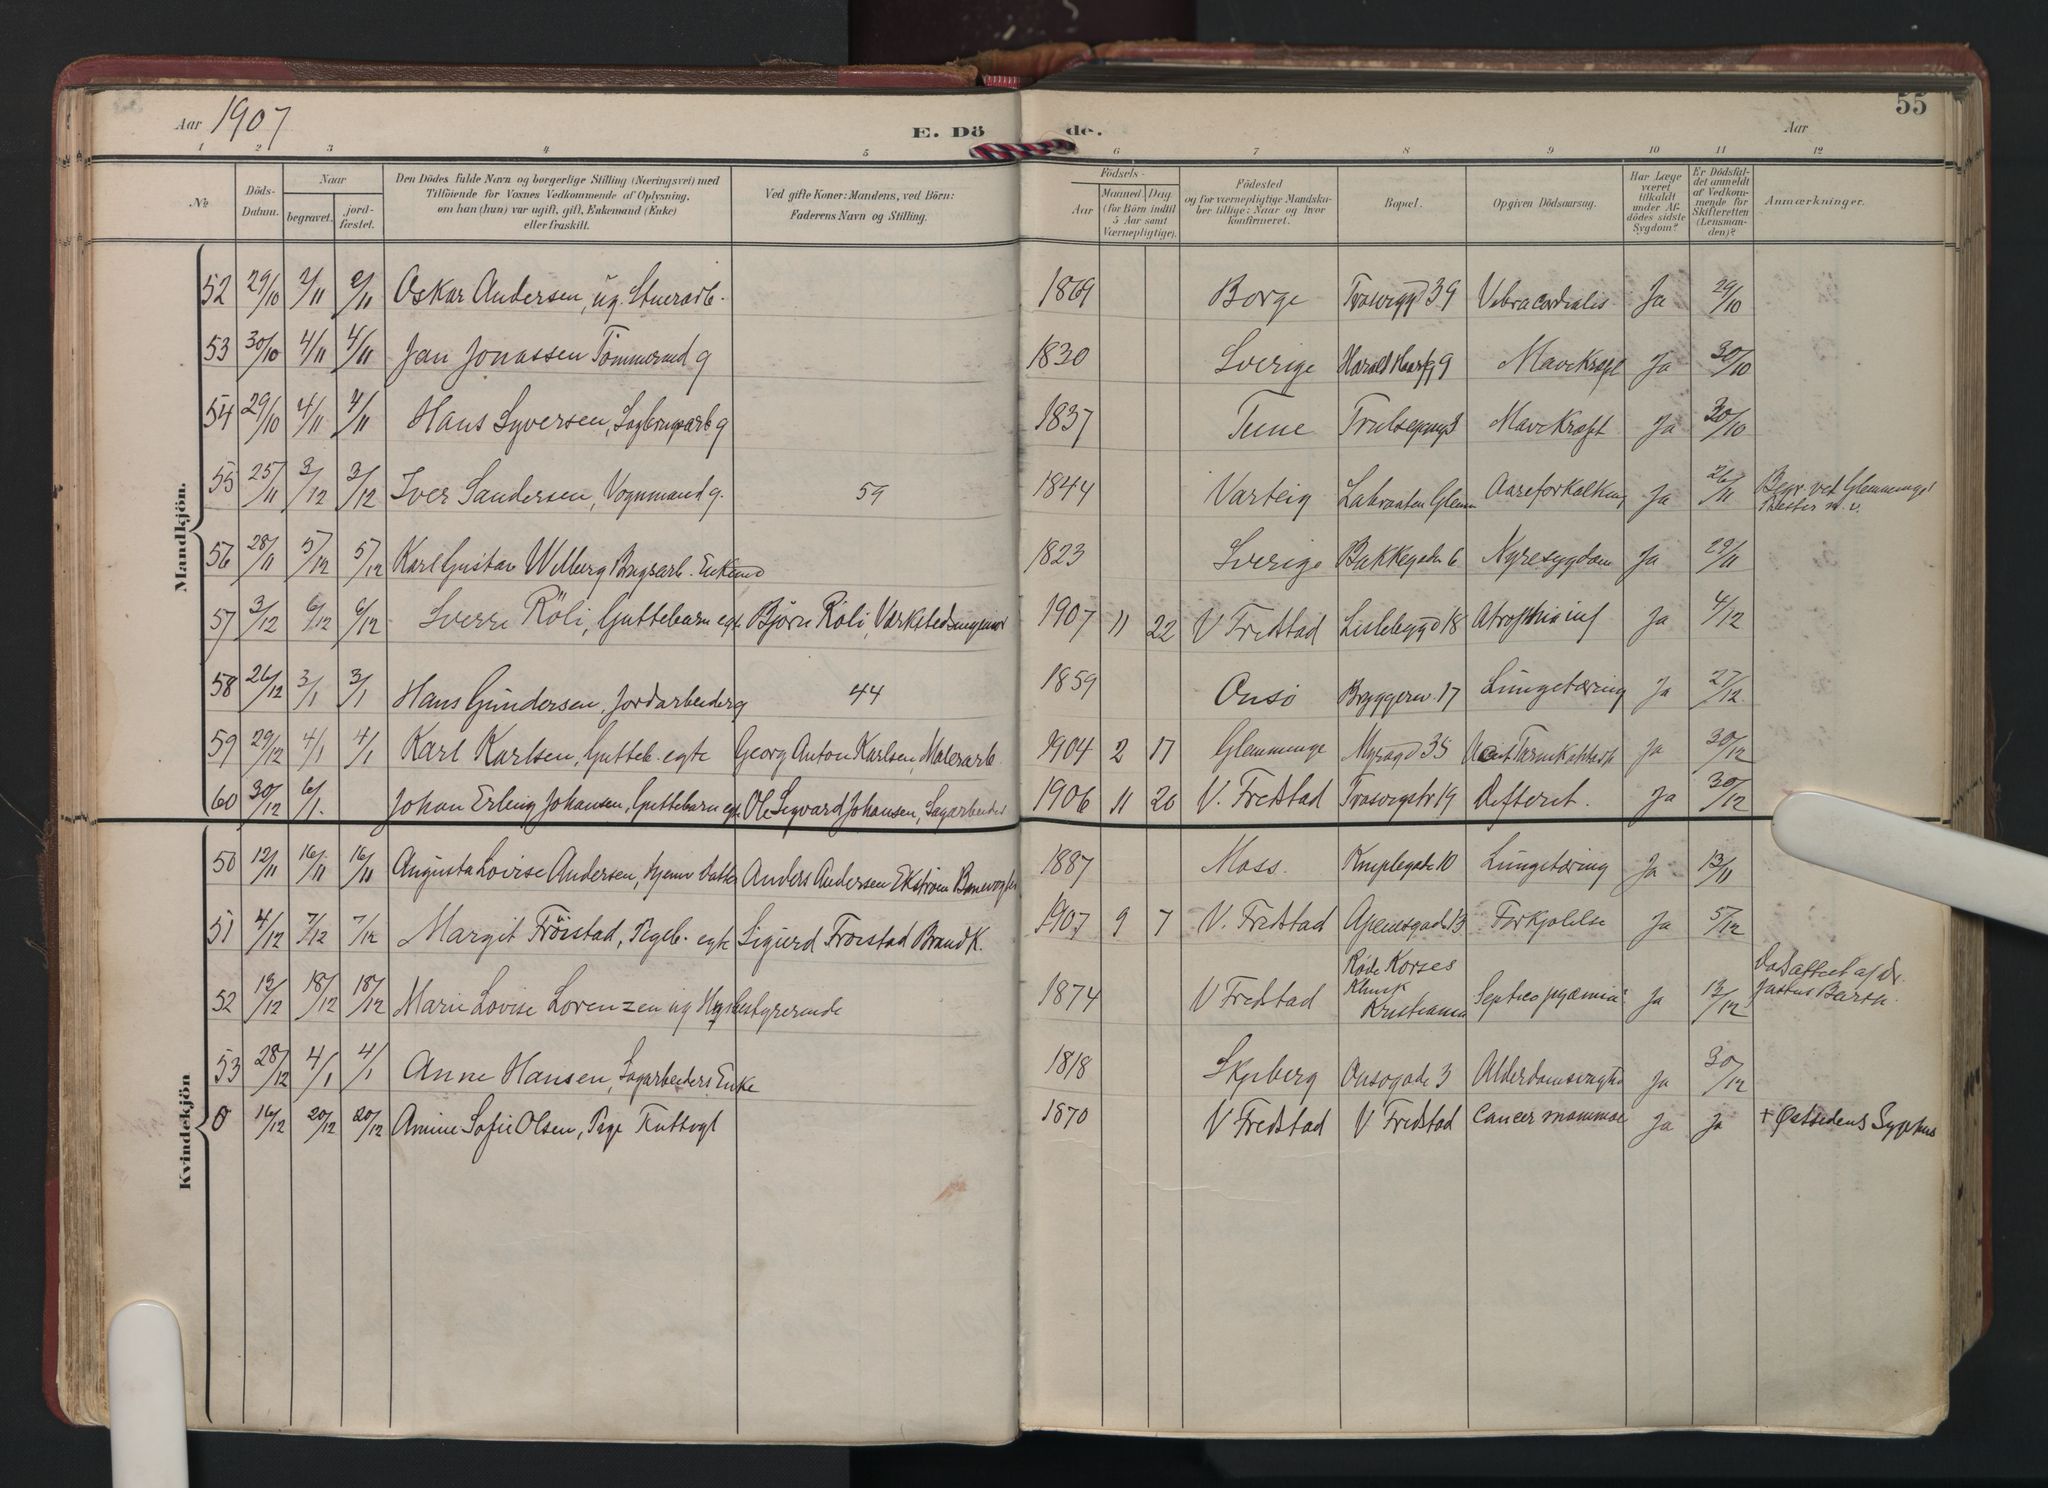 Aar 1907
E. Dö
de.
Aar
55
1 2 3 4 5 6 7 8 9 10 11 12
№
Döds-Datum.
Naar
begravet.
jord-fæstet.
Den Dödes fulde Navn og borgerlige Stilling (Næringsvei) med
Tilföiende for Voxnes Vedkommende af Oplysning,
om han (hun) var ugift, gift, Enkemand (Enke)
eller fraskilt.
Ved gifte Koner: Mandens, ved Börn:
Faderens Navn og Stilling.
Födsels-
Aar
Maaned Dag
(for Börn indtil
5 Aar samt
Værnepligtige).
Födested
og for værnepligtige Mandska-
ber tillige: Naar og hvor
konfirmeret.
Bopæl.
Opgiven Dödsaarsag.
Har Læge
været
tilkaldt
under Af-
dödes sidste
Sygdom?
Er Dödsfal-
det anmeldt
af Vedkom-
mende for
Skifteretten
(Lensman-
den)?
Anmærkninger.
Mandkjön.
52 29/10 2/11 2/11 Oskar Andersen, ug. 1869 Borge 39 Ja 29/10
53 30/10 4/11 4/11 Jan Jonassen Tömmermd g 1830 Sverige Harald Haarfg 9 Mavekræft Ja 30/10
54 29/10 4/11 4/11 Hans Syversen, g 1837 Tune Mavekræft Ja 30/10
55 25/11 3/12 3/12 Iver Sandersen, Vognmand g. 59 1844 Varteig Aareforkalkning Ja 26/11 Begr. ved Glemminges
56 28/11 5/12 5/12 Karl Gustav Enkemd 1823 Sverige Bakkegaden 6 Nyresygdom Ja 29/11
57 3/12 6/12 6/12 Sverre Röli, Guttebarn egte Björn Röli, Værkstedsingeniör 1907 11 22 V Fredstad Lislebygd 18 Atrophia inf Ja 4/12
58 26/12 3/1 3/1 Hans Gundersen, Jordarbeider g 44 1859 Onsö Bryggerv. 17 Lungetæring Ja 27/12
59 29/12 4/1 4/1 Karl Karlsen, Gutteb. egte Georg Anton Karlsen, Malerarb. 1904 2 17 Glemminge 35 Ja 30/12
60 30/12 6/1. Johan Erling Johansen, Guttebarn egte Ole Sigvard Johansen, Sagarbeider 1906 11 20 V. Fredstad 19 Difterit. Ja 30/12
Kvindekjön
50 12/11 16/11 16/11 Augusta Lovise Andersen, hjemv Datter Anders Andersen Ekström Banevogter 1887 Moss. 10 Lungetæring Ja 13/11
51 4/12 7/12 7/12 Margit Fröistad, Pigeb. egte Sigurd Fröistad Brandk. 1907 9 7 V. Fredstad 13 Forkjölelse Ja 5/12
52 13/12 18/12 18/12 Marie Lovise Lorenzen ug Husbestyrerinde 1874 V Fredstad Röde Korses
Klinik
Kristiania Septico pyæmia Ja 13/12 Dödsattest af Dr.
53 28/12 4/1 4/1 Anne Hansen, Sagarbeiders Enke 1818 Skjeberg Onsögade 3 Alderdomssvaghed Ja 30/12
0 16/12 20/12 20/12 Amine Sofie Olsen, Pige 1870 V Fredstad V Fredstad Cancer mammae Ja Ja + Østsidens Sygehus